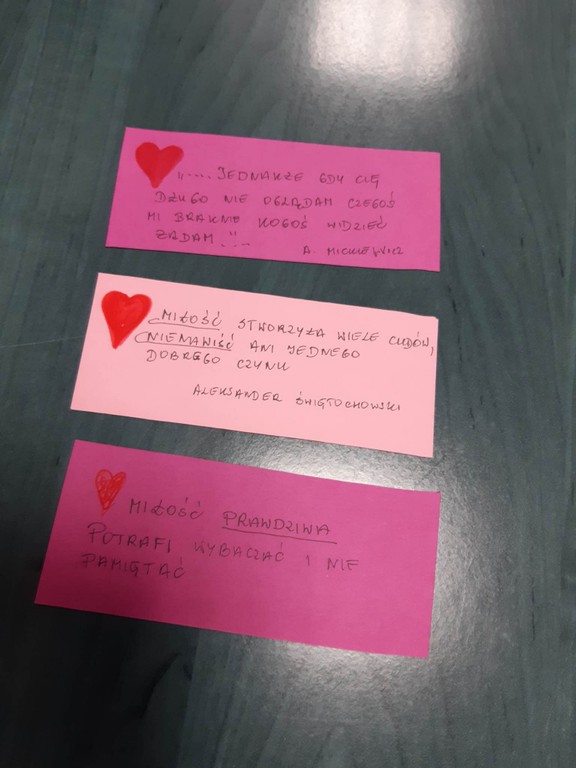 „.... JEDNAKŻE GDY CIĘ
DŁUGO NIE OGLĄDAM CZEGOŚ
MI BRAKNO KOGOŚ WIDZIEĆ
ŻĄDAM..."
A. MICKIEWICZ
MIŁOŚĆ STWORZYŁA WIELE CUDÓW,
NIENAWIŚĆ ANI JEDNEGO
DOBREGO CZYNU
ALEKSANDER ŚWIĘTOCHOWSKI
MIŁOŚĆ PRAWDZIWA
POTRAFI WYBACZAĆ I NIE
PAMIĘTAĆ